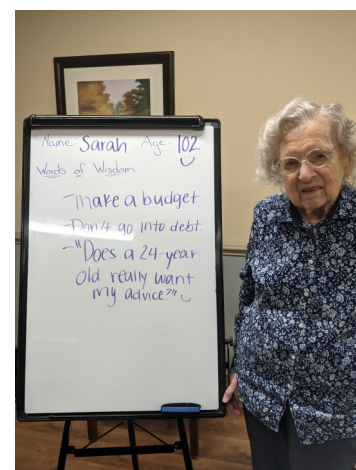 Name: Sarah Age: 102
Words of Wisdom
-Make a budget
-Don't go into debt
-"Does a 24-year
old really want
my advice?"